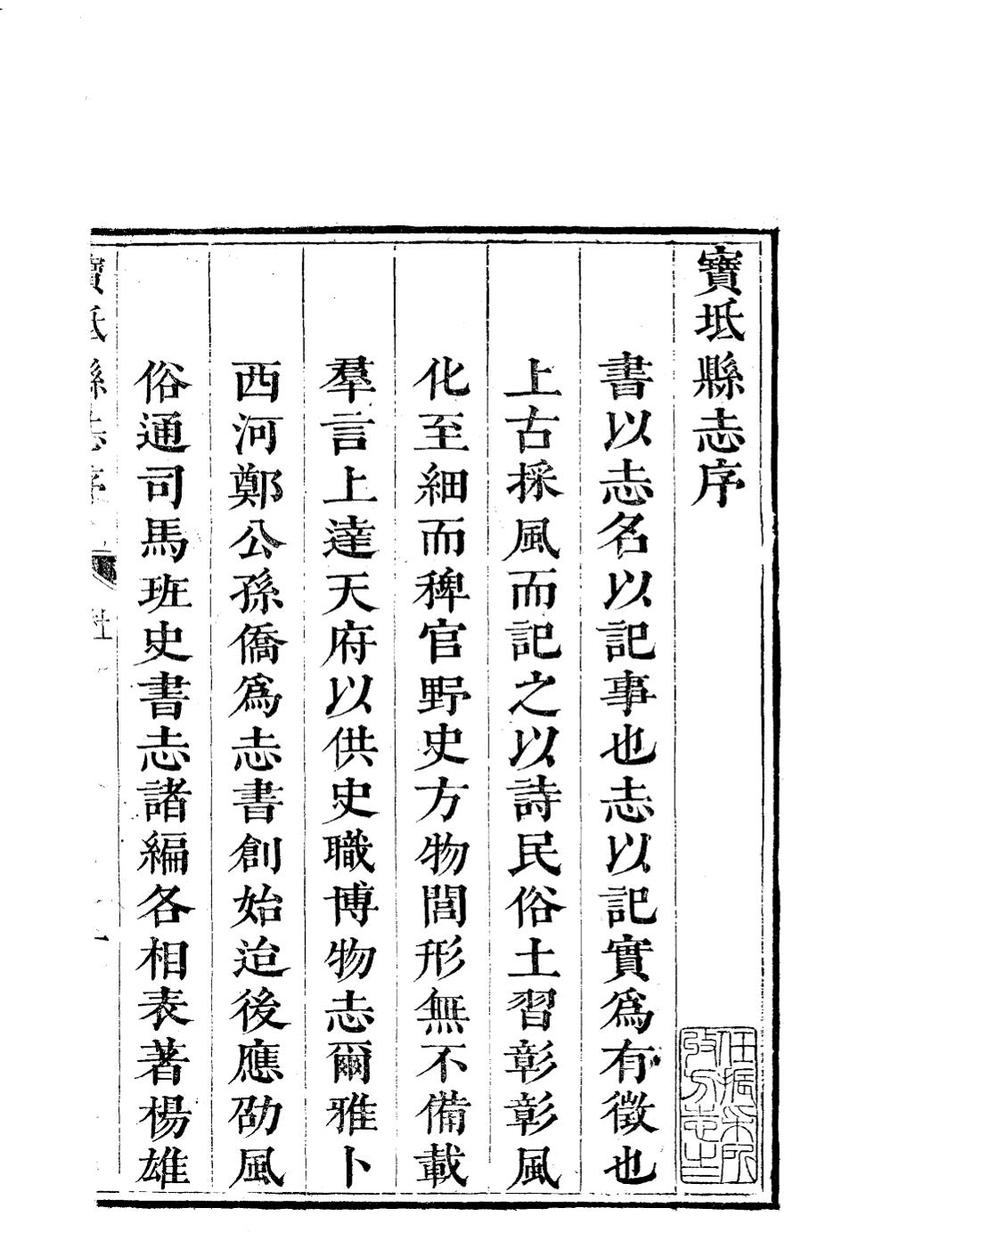 寶坻縣志序
書以志名以記事也志以記實爲有徵也
上古採風而記之以詩民俗土習彰彰風
化至細而稗官野史方物閭形無不備載
羣言上達天府以供史職博物志爾雅卜
西河鄭公孫僑爲志書創始迨後應劭風
俗通司馬班史書志諸編各相表著楊雄
寶坻縣志序
任振采所
收方志之